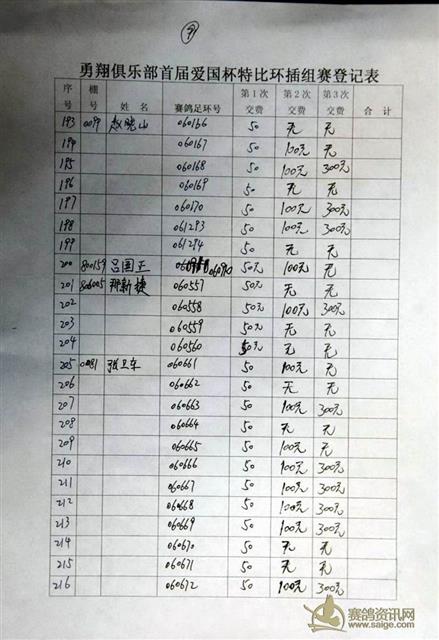 9
勇翔俱乐部首届爱国杯特比环插组赛登记表
序号 棚号 姓名 赛鸽足环号 第1次交费 第2次交费 第3次交费 合计
193 0099 赵晓山 060166 50 无 无
194 060167 50 100元 无
195 060168 50 100元 300元
196 060169 50 无 无
197 060170 50 100元 300元
198 061293 50 100元 300元
199 061294 50 无 无
200 800159 吕国正 060910 50元 100元 无
201 806005 邢新捷 060557 50元 无 无
202 060558 50元 100元 300元
203 060559 50元 无 无
204 060560 50元 无 无
205 0081 张卫东 060661 50 100元 无
206 060662 50 无 无
207 060663 50 100元 300元
208 060664 50 无 无
209 060665 50 100元 无
210 060666 50 100元 300元
211 060667 50 100元 300元
212 060668 50 100元 300元
213 060669 50 100元 300元
214 060670 50 无 无
215 060671 50 无 无
216 060672 50 100元 300元
赛鸽资讯网
www.saige.com